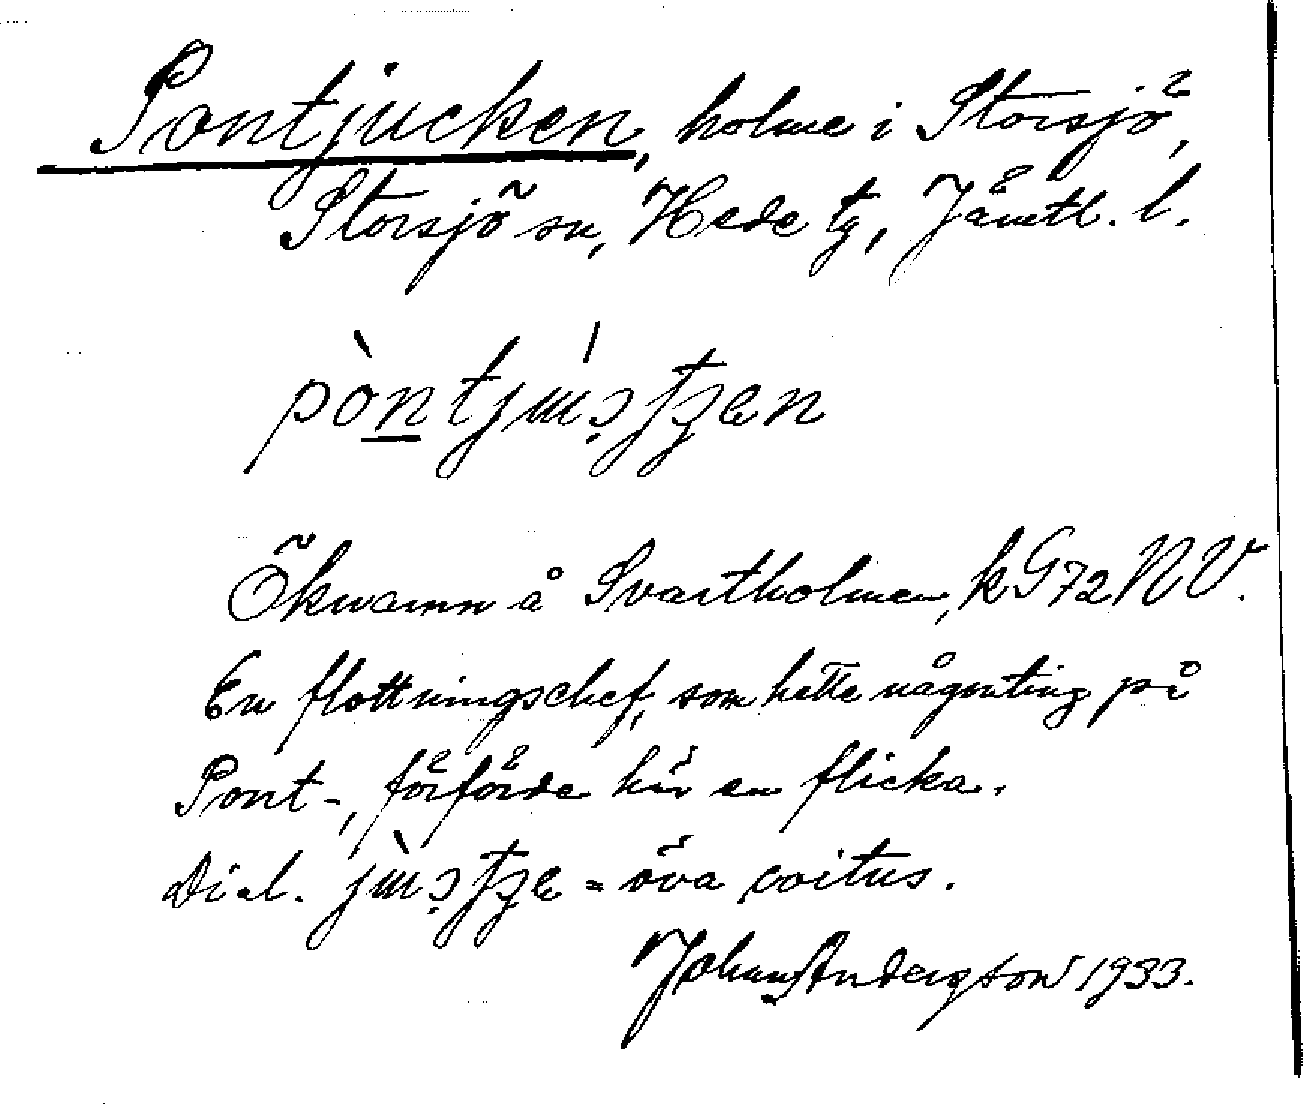 Pontjucken, holme i Storsjö,
Storsjö sn, Hede tg, Jämtl. l.
Öknamn å Svartholmen, kG72NV.
En flottningschef, som hette någonting på
Pont-, förförde här en flicka.
Dial. = öva coitus.
Johan Anderson 1933.